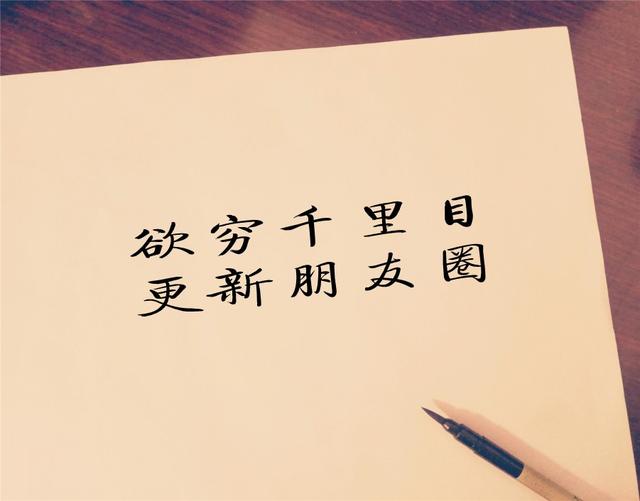 欲穷千里目
更新朋友圈